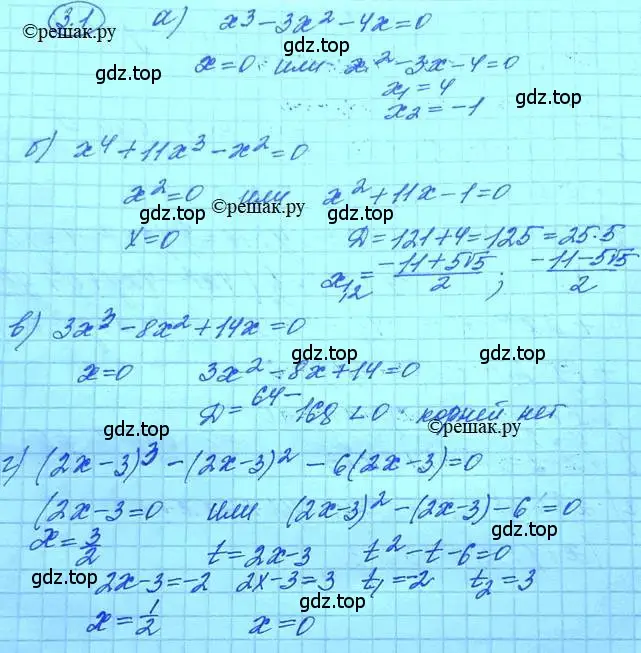 3.1 а) x³ - 3x² - 4x = 0
©решак.ру
gdz.top gdz.top
x = 0 или x² - 3x - 4 = 0
x₁ = 4
gdz.top gdz.top
x₂ = -1
б) x⁴ + 11x³ - x² = 0
x² = 0 или x² + 11x - 1 = 0
gdz.top ©решак.ру gdz.top
x = 0 Д = 121 + 4 = 125 = 25·5
x₁,₂ = (-11 + 5√5)/2 ; (-11 - 5√5)/2
в) 3x³ - 8x² + 14x = 0
gdz.top gdz.top
x = 0 3x² - 8x + 14 = 0
Д = 64 - 168 < 0 корней нет
gdz.top gdz.top ©решак.ру
г) (2x-3)³ - (2x-3)² - 6(2x-3) = 0
(2x-3=0 или (2x-3)² - (2x-3) - 6 = 0
gdz.top gdz.top
x = 3/2 t = 2x-3 t² - t - 6 = 0
gdz.top gdz.top
2x-3 = -2 2x-3 = 3 t₁ = -2 t₂ = 3
gdz.top gdz.top
x = 1/2 x = 0